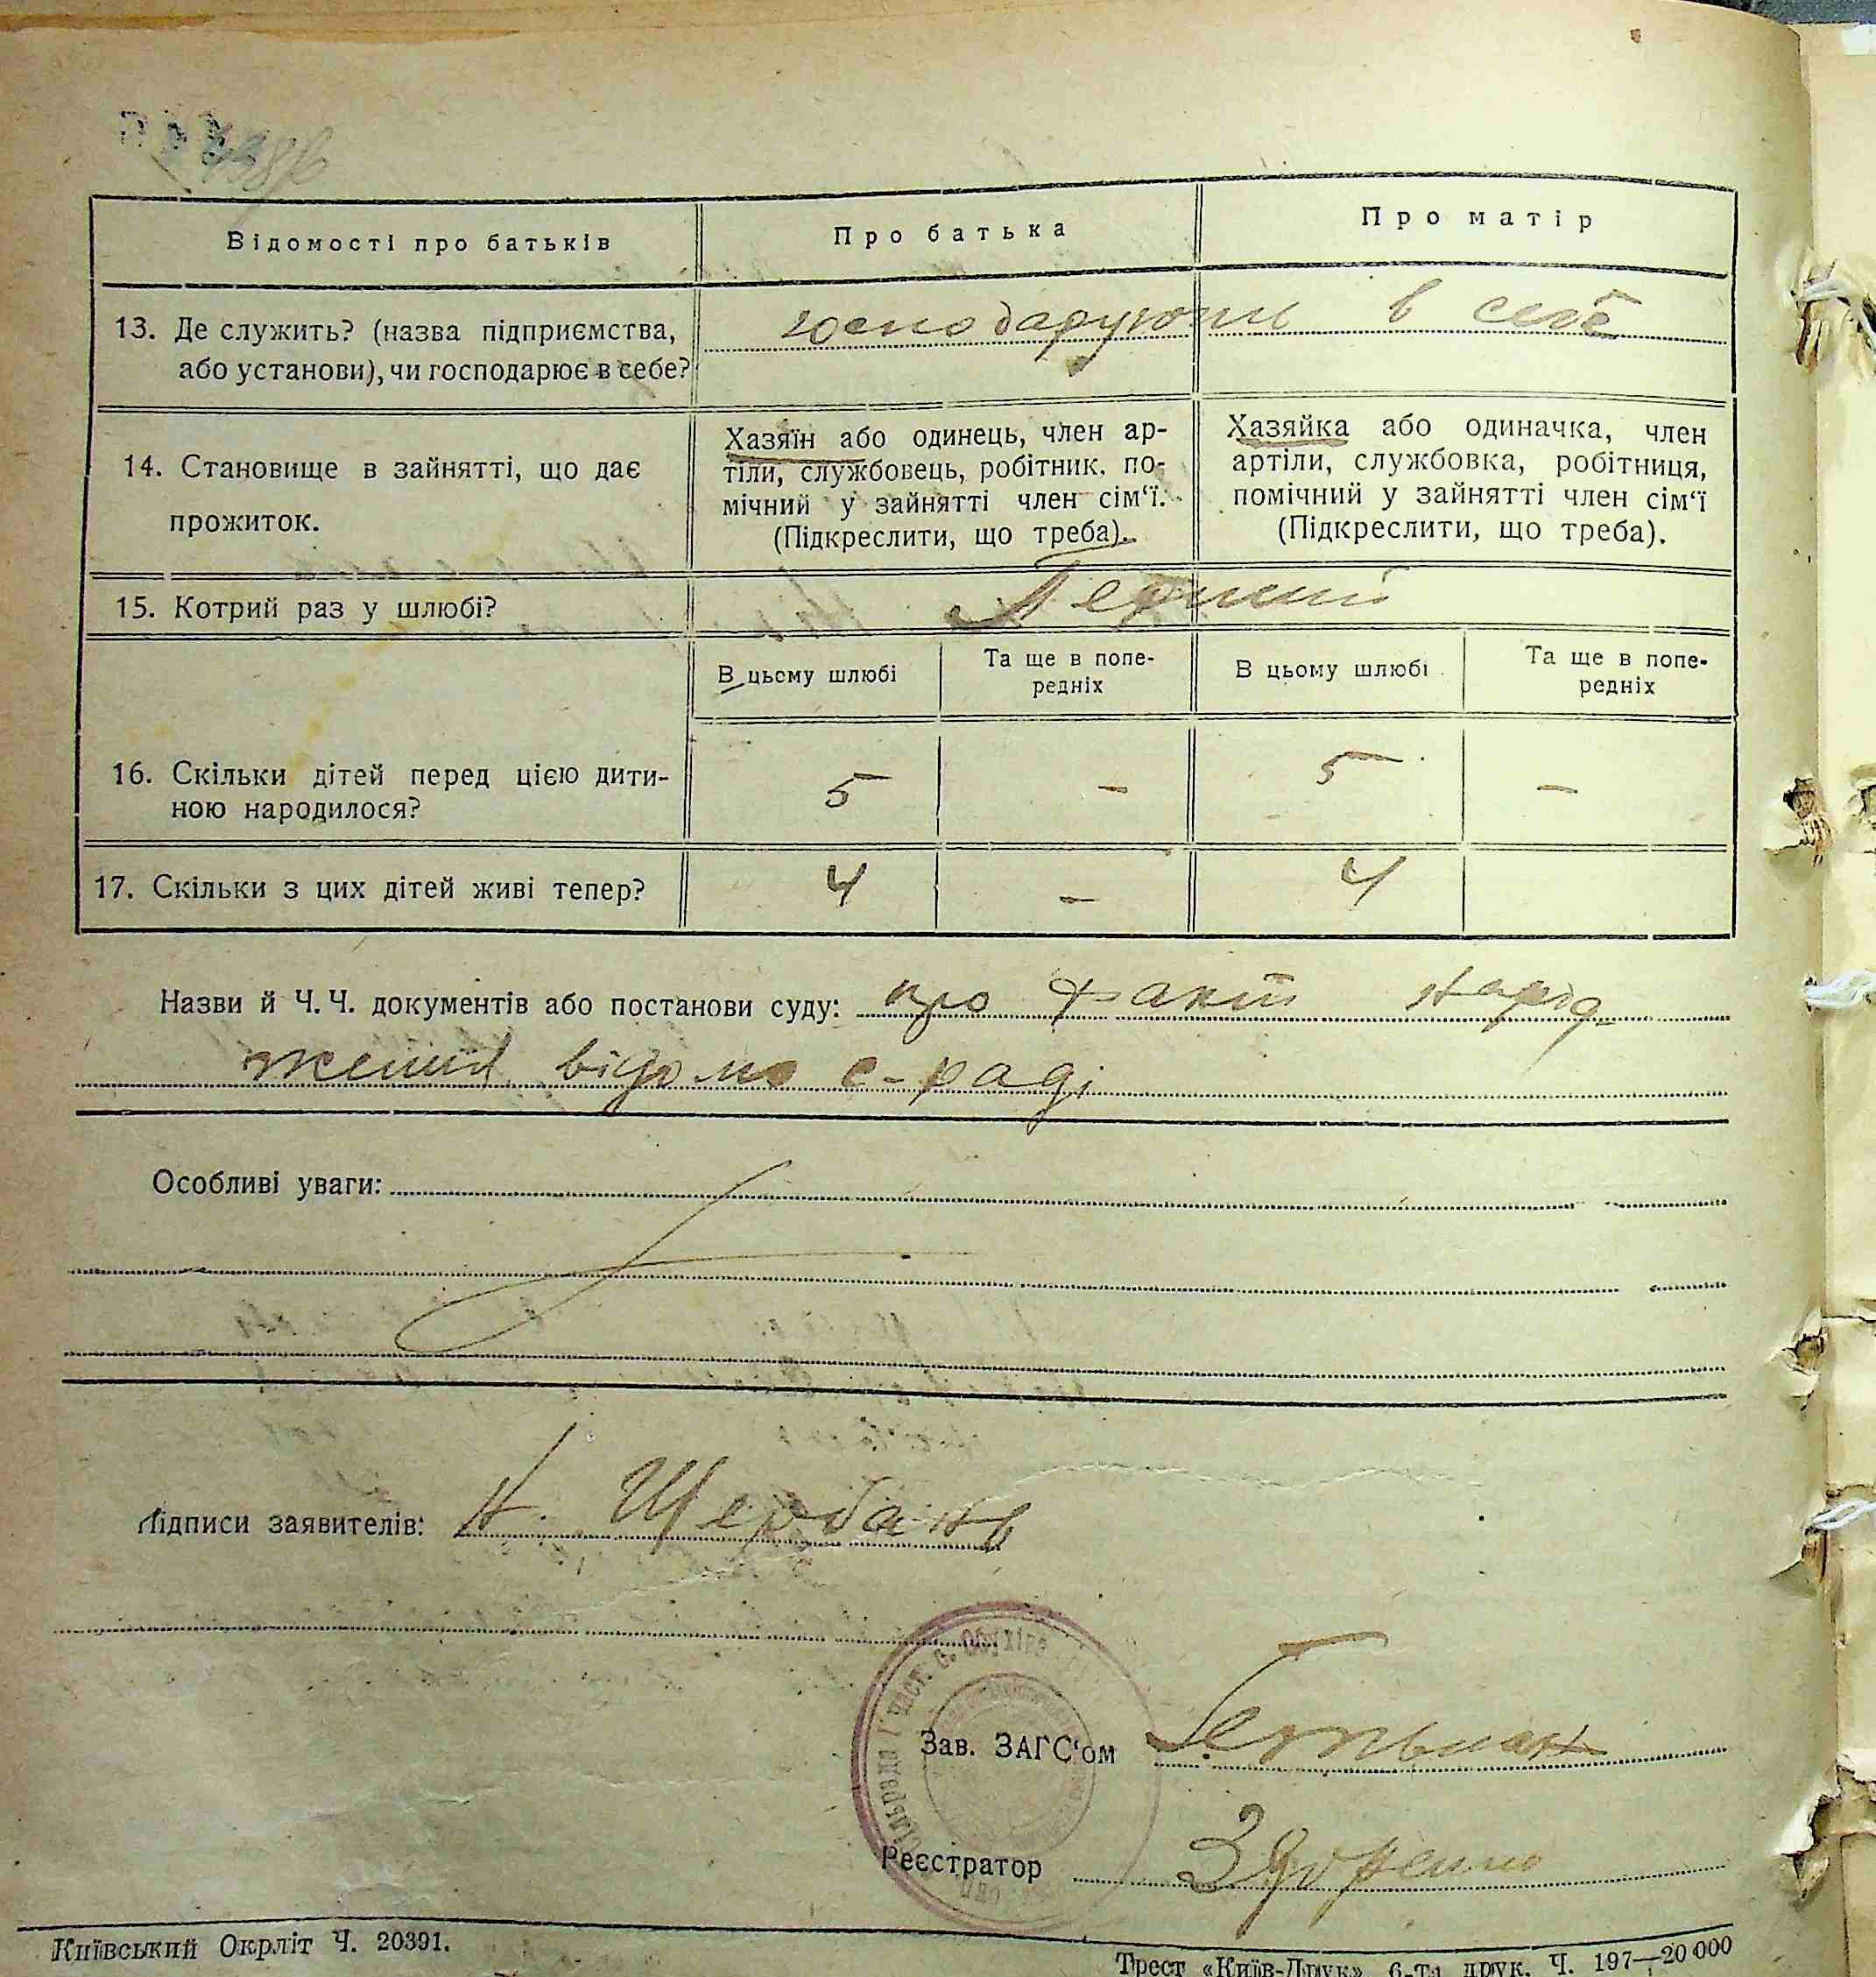 Відомості про батьків
Про батька
Про матір
13. Де служить? (назва підприємства,
або установи), чи господарює в себе?
господарують в себе
14. Становище в зайнятті, що дає
прожиток.
Хазяїн або одинець, член ар-
тіли, службовець, робітник. по-
мічний у зайнятті член сім‘ї.
(Підкреслити, що треба).
Хазяйка або одиначка, член
артіли, службовка, робітниця,
помічний у зайнятті член сім‘ї
(Підкреслити, що треба).
15. Котрий раз у шлюбі?
Перший
В цьому шлюбі
Та ще в попе-
редніх
В цьому шлюбі
Та ще в попе-
редніх
16. Скільки дітей перед цією дити-
ною народилося?
5 – 5 –
17. Скільки з цих дітей живі тепер?
4 – 4
Назви й Ч. Ч. документів або постанови суду: про факт народ-
ження відомо с-раді
Особливі уваги:
Підписи заявителів: Н. Щербань
част. с. Обухів
Зав. ЗАГС‘ом
Реєстратор
Київський Окрліт Ч. 20391.
Трест «Київ-Друк» 6-та друк. Ч. 197—20 000